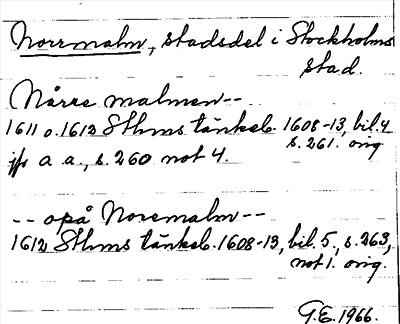 Norrmalm, stadsdel i Stockholms
stad.
Nårre malmen--
1611 o. 1612 Sthms tänkeb. 1608-13, bil. 4
s. 261. orig
jfr a. a., s. 260 not 4.
-- opå Norremalm--
1612 Sthms tänkeb. 1608-13, bil. 5, s. 263,
not 1. orig.
G.E. 1966.